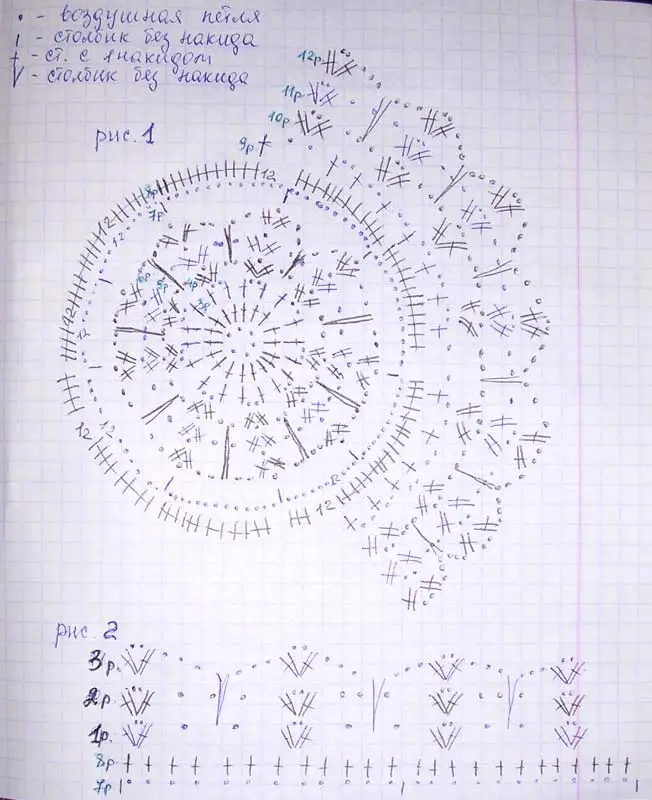 • - воздушная петля
| - столбик без накида
† - ст. с 1 накидом
V - столбик без накида
12р
11р
10р
9р
рис. 1
8р
7р
12
12
12
12
6р
5р
4р
3р
12
12
12
12
12
рис. 2
3р.
2р.
1р.
8р
7р